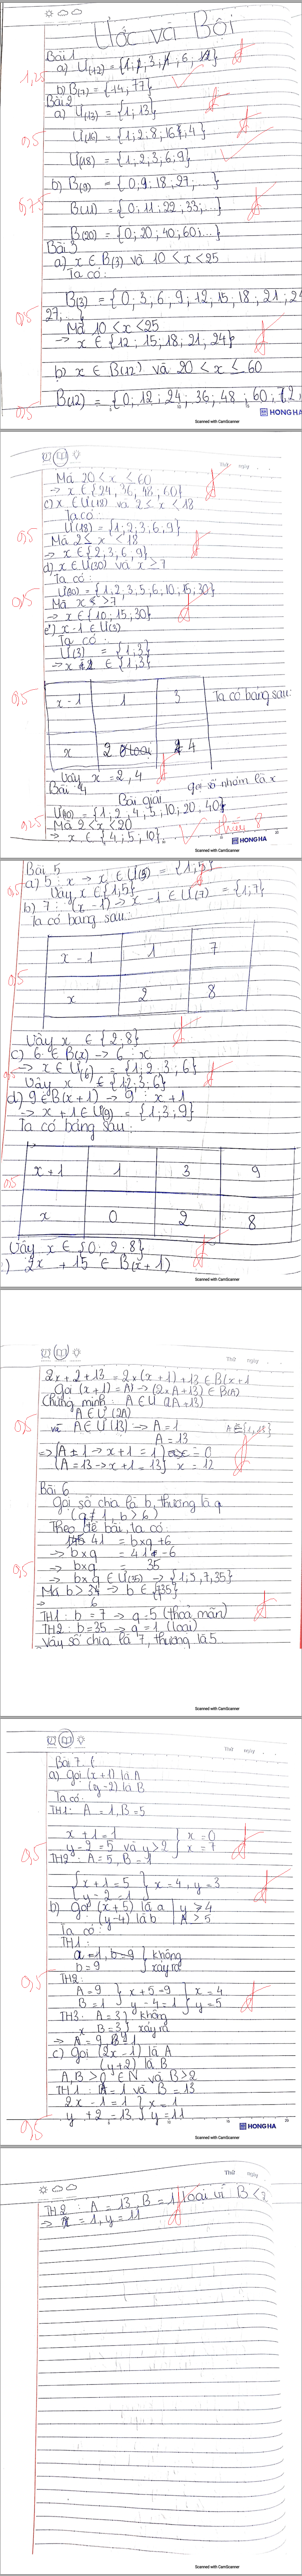 Ước và Bội
Bài 1
1,25
a) Ư(12) = {1, 2, 3, 4, 6, 12}
b) B(7) = {14, 77}
Bài 2
a) Ư(13) = {1; 13}
0,5
Ư(16) = {1; 2; 8; 16; 4}
Ư(18) = {1; 2; 3; 6; 9}
b) B(9) = {0; 9; 18; 27; ...}
0,75
B(11) = {0; 11; 22; 33; ...}
B(20) = {0; 20; 40; 60; ...}
Bài 3
a) x ∈ B(3) và 10 < x < 25
Ta có:
B(3) = {0; 3; 6; 9; 12; 15; 18; 21; 24
27; ...}
0,5
Mà 10 < x < 25
→ x ∈ {12; 15; 18; 21; 24}
b) x ∈ B(12) và 20 < x ≤ 60
0,5
B(12) = {0; 12; 24; 36; 48; 60; 72
HONG HA
Scanned with CamScanner
Thứ ngày
Mà 20 < x ≤ 60
→ x ∈ {24, 36, 48, 60}
c) x ∈ Ư(18) và 2 ≤ x < 18
Ta có:
0,5
Ư(18) = {1; 2; 3; 6; 9}
Mà 2 ≤ x < 18
→ x ∈ {2, 3, 6, 9}
d) x ∈ Ư(30) và x > 7
Ta có:
Ư(30) = {1; 2; 3; 5; 6; 10; 15; 30}
0,5
Mà x > 7
→ x ∈ {10; 15; 30}
e) x - 1 ∈ Ư(3)
Ta có:
Ư(3) = {1; 3}
→ x - 1 ∈ {1; 3}
0,5
Ta có bảng sau:
x - 1 1 3
x 2 4
Vậy x = 2, 4
Bài 4
Bài giải
gọi số nhóm là x
Ư(40) = {1; 2; 4; 5; 10; 20; 40}
Mà 2 < x < 20
0,25
→ x ∈ {4; 5; 10}
thiếu 8
HONG HA
Scanned with CamScanner
Bài 5
a) 5 ⋮ x → x ∈ Ư(5) = {1; 5}
0,5
Vậy x ∈ {1, 5}
b) 7 ⋮ (x - 1) → x - 1 ∈ Ư(7) = {1, 7}
Ta có bảng sau:
0,5
x - 1 1 7
x 2 8
Vậy x ∈ {2; 8}
c) 6 ∈ B(x) → 6 ⋮ x
→ x ∈ Ư(6) = {1; 2; 3; 6}
0,5
Vậy x ∈ {1; 2; 3; 6}
d) 9 ∈ B(x + 1) → 9 ⋮ x + 1
→ x + 1 ∈ Ư(9) = {1; 3; 9}
Ta có bảng sau:
0,5
x + 1 1 3 9
x 0 2 8
Vậy x ∈ {0; 2; 8}
) 2x + 15 ∈ B(x + 1)
Scanned with CamScanner
Thứ ngày
2x + 2 + 13 = 2 × (x + 1) + 13 ∈ B(x + 1
Gọi (x + 1) = A → (2 × A + 13) ∈ B(A)
Chứng minh: A ∈ Ư(2A + 13)
A ∈ Ư(2A)
0,5
và A ∈ Ư(13) → A = 1
A ∈ {1, 13}
A = 13
=> {A = 1 → x + 1 = 1} x = 0
{A = 13 → x + 1 = 13} x = 12
Bài 6
Gọi số chia là b, thương là q
(q ≠ 1, b > 6)
Theo đề bài, ta có:
41 = b × q + 6
0,5
→ b × q = 41 - 6
→ b × q = 35
→ b × q ∈ Ư(35) → {1, 5, 7, 35}
Mà b > 6 → b ∈ {7, 35}
TH1: b = 7 → q = 5 (thoả mãn)
TH2: b = 35 → q = 1 (loại)
Vậy số chia là 7, thương là 5.
Scanned with CamScanner
Thứ ngày
Bài 7
a) Gọi (x + 1) là A
(y - 2) là B
Ta có:
TH1: A = 1, B = 5
0,5
x + 1 = 1
y - 2 = 5 và y > 2
x = 0
x = 7
TH2: A = 5, B = 1
x + 1 = 5
y - 2 = 1
x = 4, y = 3
b) Gọi (x + 5) là a
(y - 4) là b
y > 4
A > 5
Ta có:
TH1:
a = 1, b = 9
b = 9
không xảy ra
0,5
TH2:
A = 9
B = 1
x + 5 = 9
y - 4 = 1
x = 4
y = 5
TH3: A = 3
B = 3
không xảy ra
→ A = 9, B = 1
c) Gọi (2x - 1) là A
(y + 2) là B
A, B > 0 ∈ N và B > 2
TH1: A = 1 và B = 13
2x - 1 = 1
y + 2 = 13
x = 1
y = 11
0,5
HONG HA
Scanned with CamScanner
Thứ ngày
TH2: A = 13, B = 1 loại vì B < 2
→ x = 1, y = 11
Scanned with CamScanner